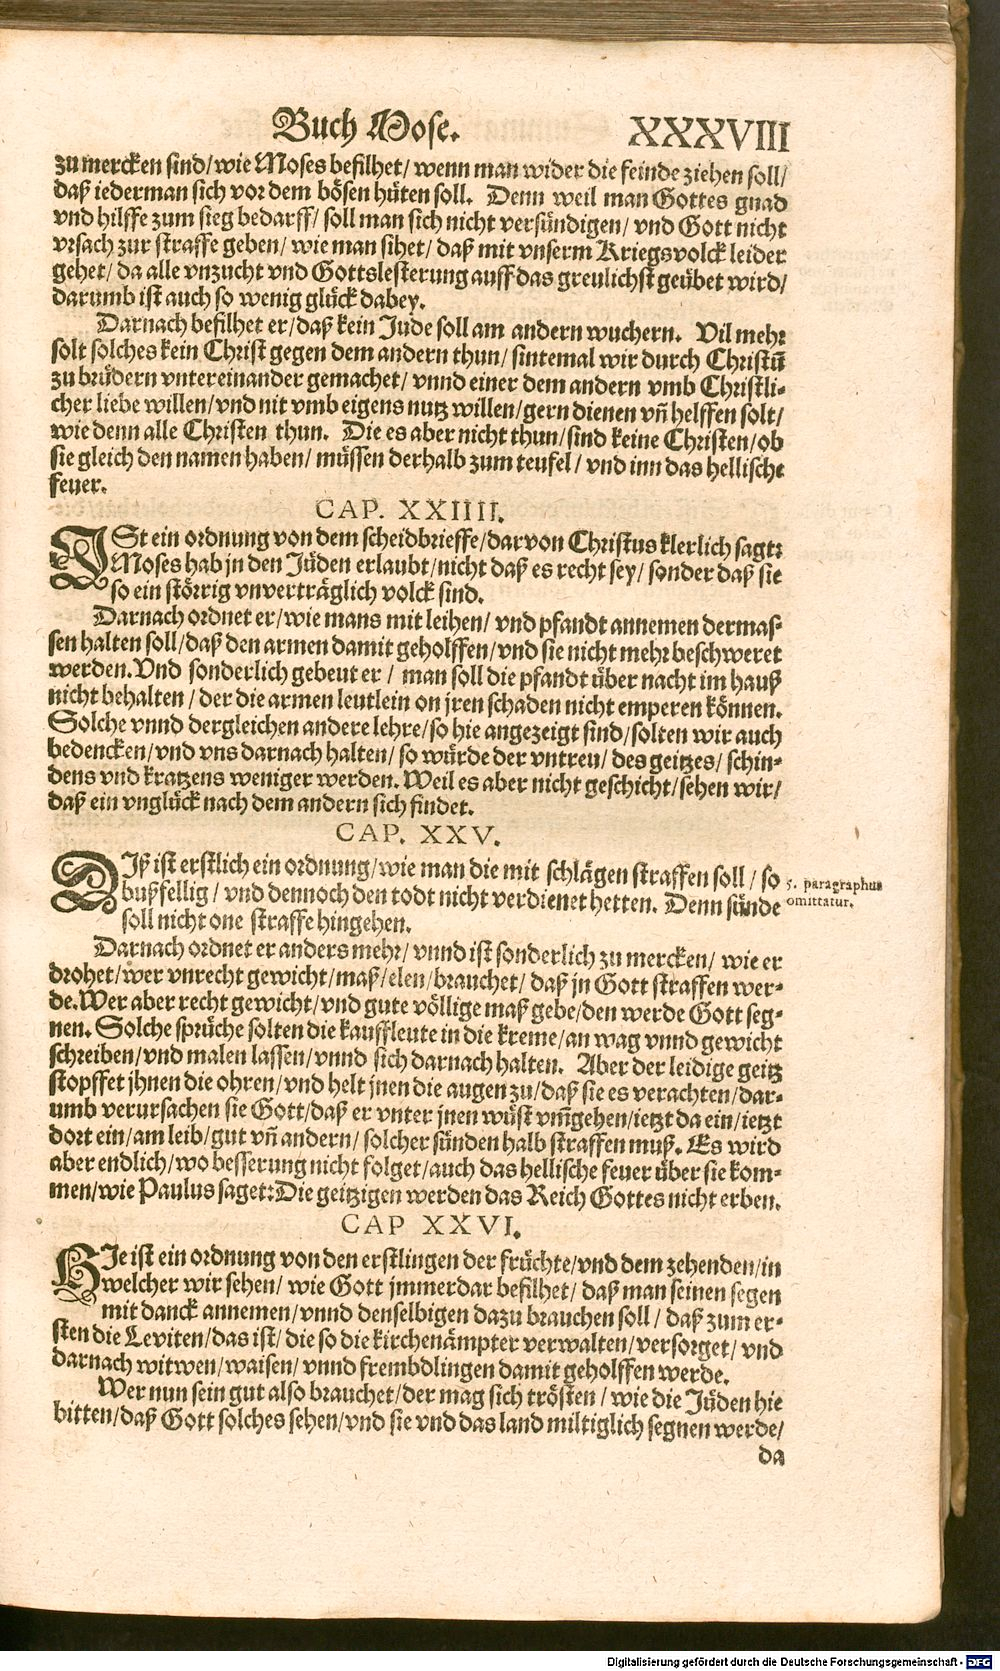 Buch Mose. XXXVIII
zu mercken sind/wie Moses befilhet/ wenn man wider die feinde ziehen soll/
daß iederman sich vor dem bösen hüten soll. Denn weil man Gottes gnad
vnd hilffe zum sieg bedarff/ soll man sich nicht versündigen/ vnd Gott nicht
vrsach zur straffe geben/ wie man sihet/ daß mit vnserm Kriegsvolck leider
gehet/ da alle vnzucht vnd Gottslesterung auff das greulichst geübet wird/
darumb ist auch so wenig glück dabey.
Darnach befilhet er/ daß kein Jude soll am andern wuchern. Vil mehr
solt solches kein Christ gegen dem andern thun/ sintemal wir durch Christū
zu brüdern vntereinander gemachet/ vnnd einer dem andern vmb Christli-
cher liebe willen/vnd nit vmb eigens nutz willen/gern dienen vñ helffen solt/
wie denn alle Christen thun. Die es aber nicht thun/sind keine Christen/ob
sie gleich den namen haben/ müssen derhalb zum teufel/ vnd inn das hellische
feuer.
CAP. XXIIII.
ISt ein ordnung von dem scheidbrieffe/darvon Christus klerlich sagt:
Moses hab jn den Jüden erlaubt/nicht daß es recht sey/ sonder daß sie
so ein störrig vnverträglich volck sind.
Darnach ordnet er/wie mans mit leihen/ vnd pfandt annemen dermas-
sen halten soll/daß den armen damit geholffen/vnd sie nicht mehr beschweret
werden. Vnd sonderlich gebeut er/ man soll die pfandt über nacht im hauß
nicht behalten/ der die armen leutlein on jren schaden nicht emperen können.
Solche vnnd dergleichen andere lehre/so hie angezeigt sind/solten wir auch
bedencken/vnd vns darnach halten/ so würde der vntreu/ des geitzes/ schin-
dens vnd kratzens weniger werden. Weil es aber nicht geschicht/sehen wir/
daß ein vnglück nach dem andern sich findet.
CAP. XXV.
DIß ist erstlich ein ordnung/wie man die mit schlägen straffen soll/ so
bußfellig/ vnd dennoch den todt nicht verdienet hetten. Denn sünde
soll nicht one straffe hingehen.
5. paragraphus
omittatur.
Darnach ordnet er anders mehr/ vnnd ist sonderlich zu mercken/ wie er
drohet/wer vnrecht gewicht/maß/elen/brauchet/ daß jn Gott straffen wer-
de. Wer aber recht gewicht/vnd gute völlige maß gebe/den werde Gott seg-
nen. Solche sprüche solten die kauffleute in die kreme/an wag vnnd gewicht
schreiben/vnd malen lassen/vnnd sich darnach halten. Aber der leidige geitz
stopffet jhnen die ohren/vnd helt jnen die augen zu/daß sie es verachten/dar-
umb verursachen sie Gott/daß er vnter jnen wüst vm̄gehen/ietzt da ein/ietzt
dort ein/am leib/gut vñ andern/ solcher sünden halb straffen muß. Es wird
aber endlich/wo besserung nicht folget/auch das hellische feuer über sie kom-
men/wie Paulus saget: Die geitzigen werden das Reich Gottes nicht erben.
CAP XXVI.
HIe ist ein ordnung von den erstlingen der früchte/vnd dem zehenden/in
welcher wir sehen/ wie Gott jmmerdar befilhet/ daß man seinen segen
mit danck annemen/vnnd denselbigen dazu brauchen soll/ daß zum er-
sten die Leviten/das ist/die so die kirchenämpter verwalten/versorget/ vnd
darnach witwen/waisen/ vnnd frembdlingen damit geholffen werde.
Wer nun sein gut also brauchet/der mag sich trösten/ wie die Jüden hie
bitten/daß Gott solches sehen/vnd sie vnd das land miltiglich segnen werde/
da
Digitalisierung gefördert durch die Deutsche Forschungsgemeinschaft - DFG